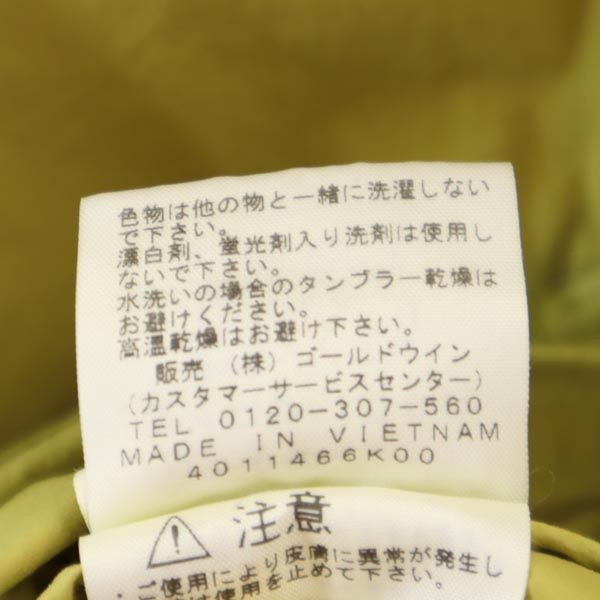 色物は他の物と一緒に洗濯しない
で下さい。
漂白剤、蛍光剤入り洗剤は使用し
ないで下さい。
水洗いの場合のタンブラー乾燥は
お避けください。
高温乾燥はお避け下さい。
販売 (株) ゴールドウイン
(カスタマーサービスセンター)
TEL 0120-307-560
MADE IN VIETNAM
4011466K00
注意
・ご使用により皮膚に異常が発生し
は使用を止めて下さい。